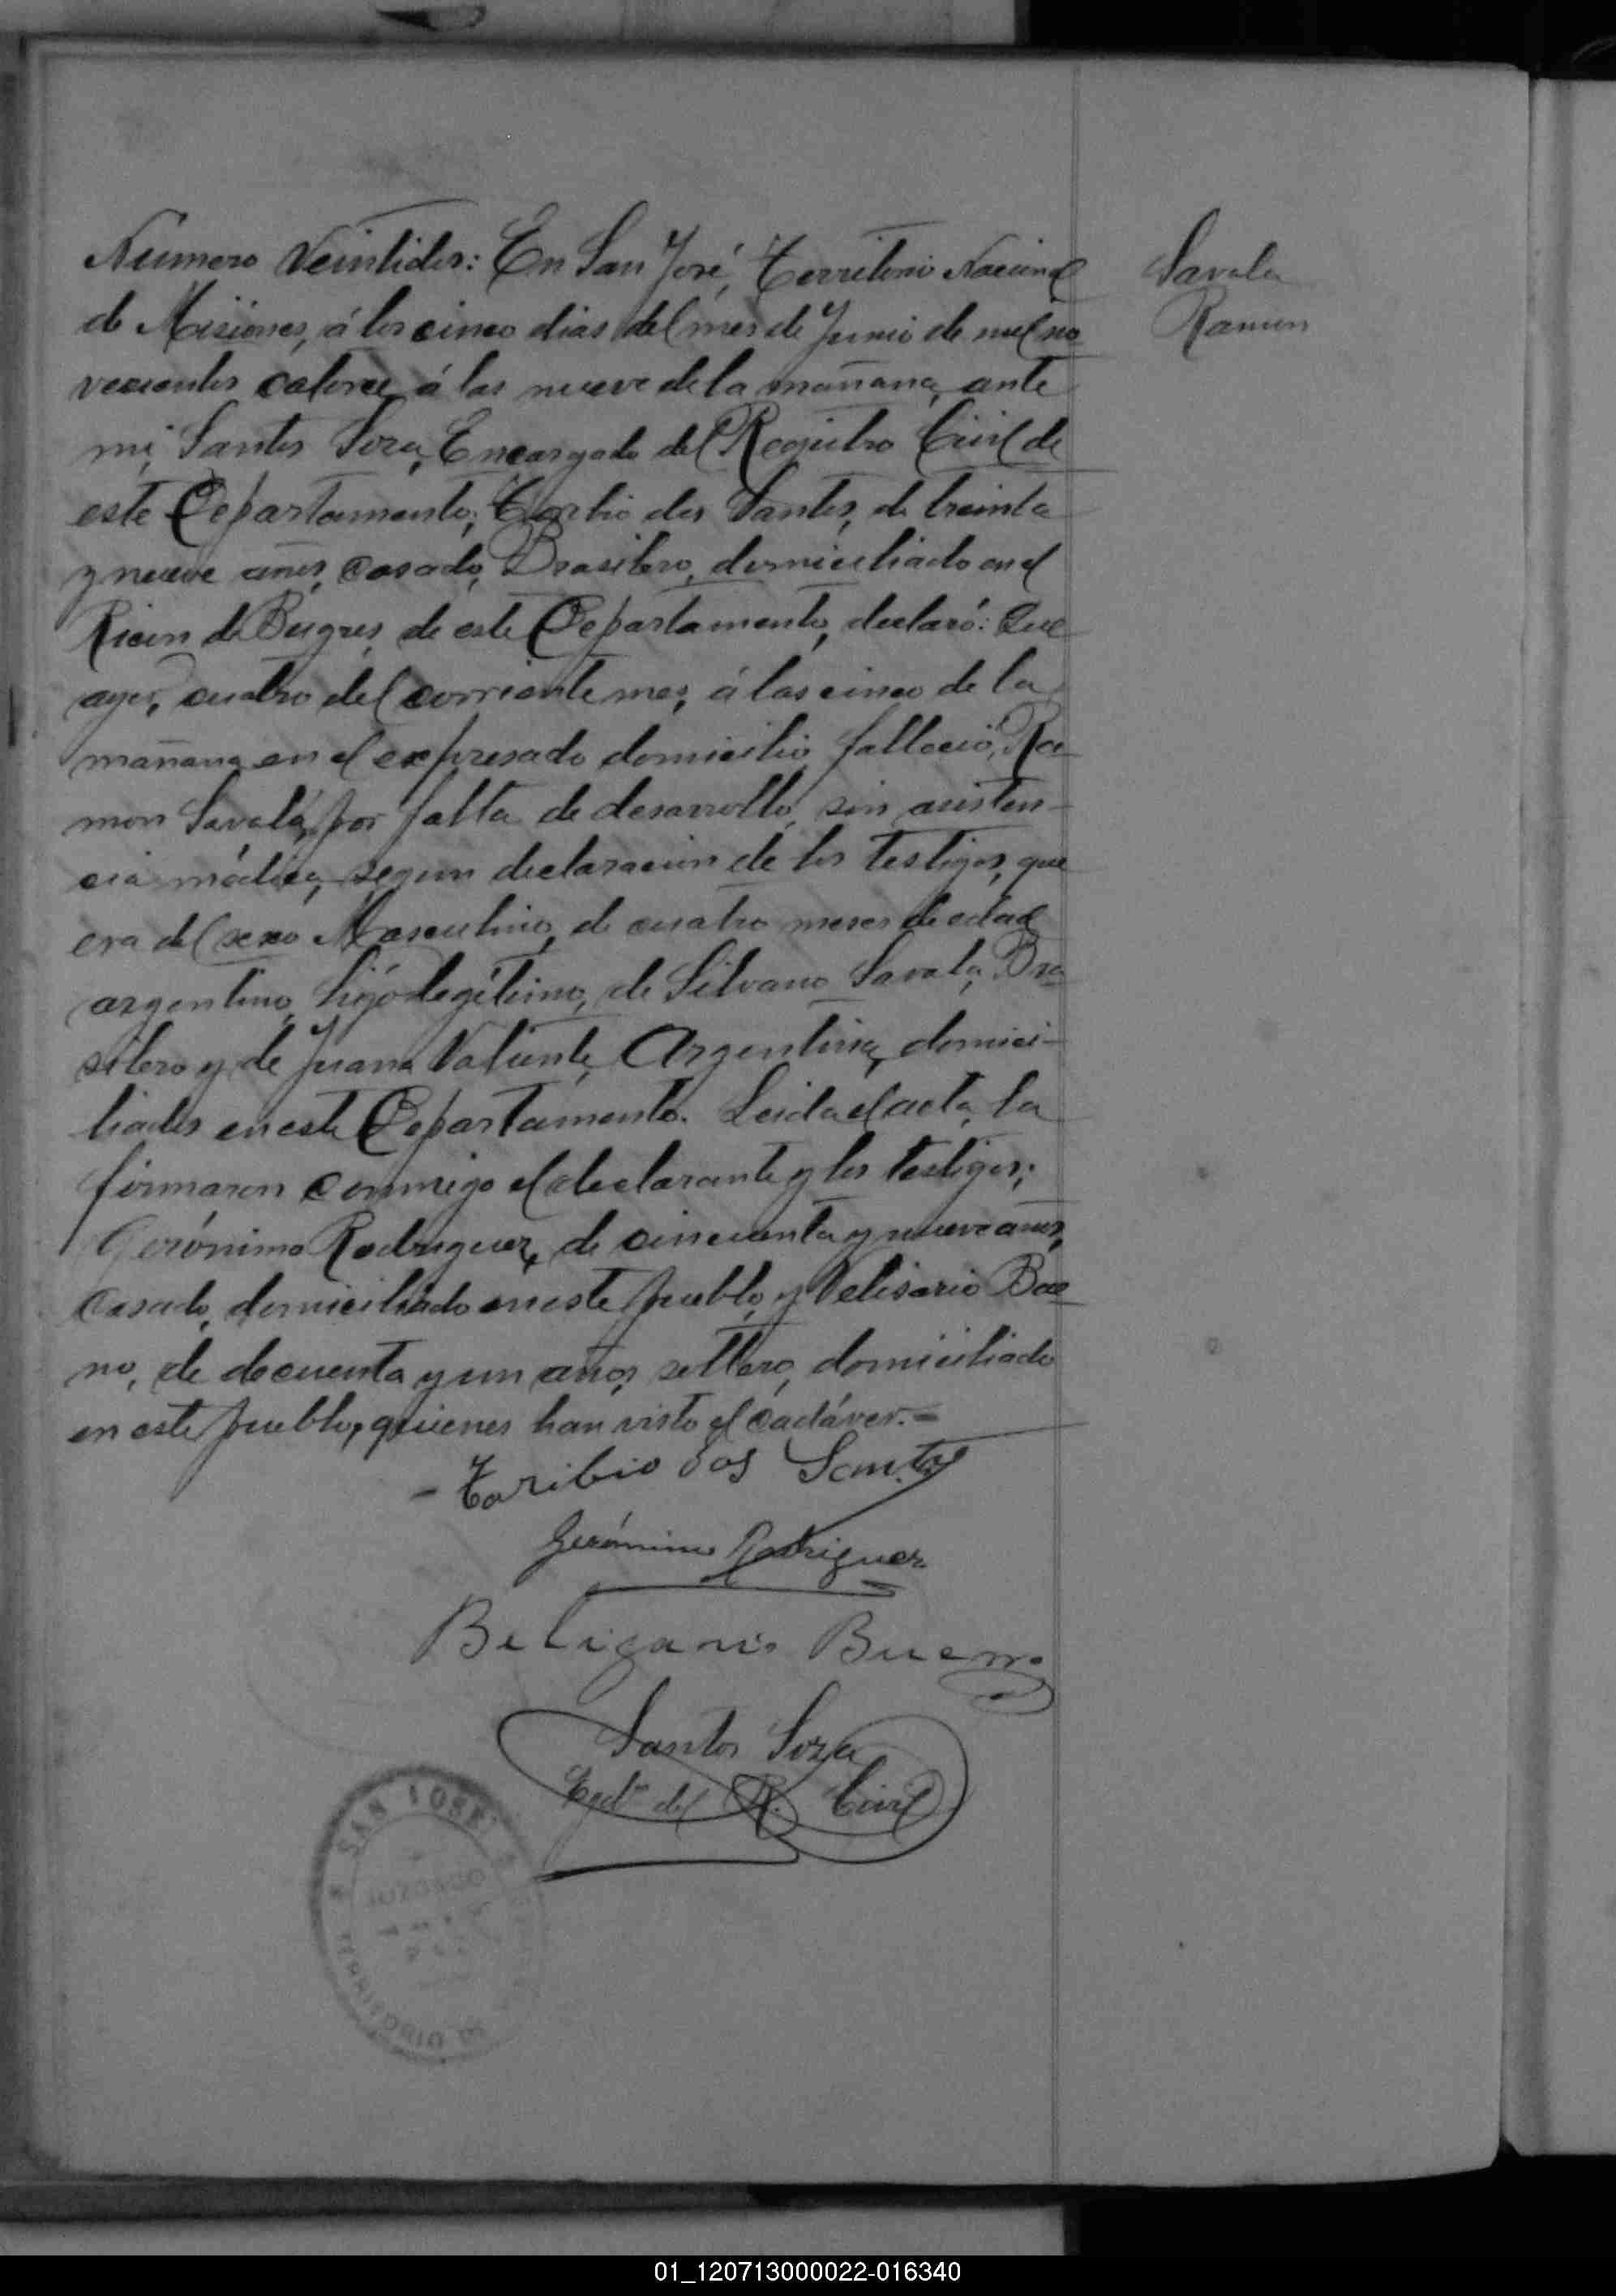 Número Veintidos: En San José, Territorio Nacional
de Misiones, á los cinco dias del mes de Junio de mil no
vecientos catorce á las nueve de la mañana, ante
mi, Santos Soza, Encargado del Registro Civil de
este Departamento; Toribio dos Santos, de treinta
y nueve años, casado, Brasilero, domiciliado en el
de Bugres, de este Departamento, declaró: Que
ayer, cuatro del corriente mes, á las cinco de la
mañana en el expresado domicilio falleció, Ra-
mon Savala, por falta de desarrollo, sin asisten-
cia médica, segun declaracion de los testigos, que
era del sexo Masculino, de cuatro meses de edad
argentino, hijo legitimo, de Silvano Savala, Bra-
silero y de Juana Valiente, Argentina, domici-
liados en este Departamento. Leida el acta, la
firmaron conmigo el declarante y los testigos;
Gerónimo Rodriguez, de cincuenta y nueve años,
casado, domiciliado en este pueblo, y Velisario Bue-
no, de cuenta y un años, soltero, domiciliado
en este pueblo, quienes han visto el cadáver.=
- Toribio dos Santos
Gerónimo Rodriguez
Belizario Bueno
Santos Soza
Egdo del R. Civil
Savala
Ramon
SAN JOSE
JUZGADO
01_120713000022-016340